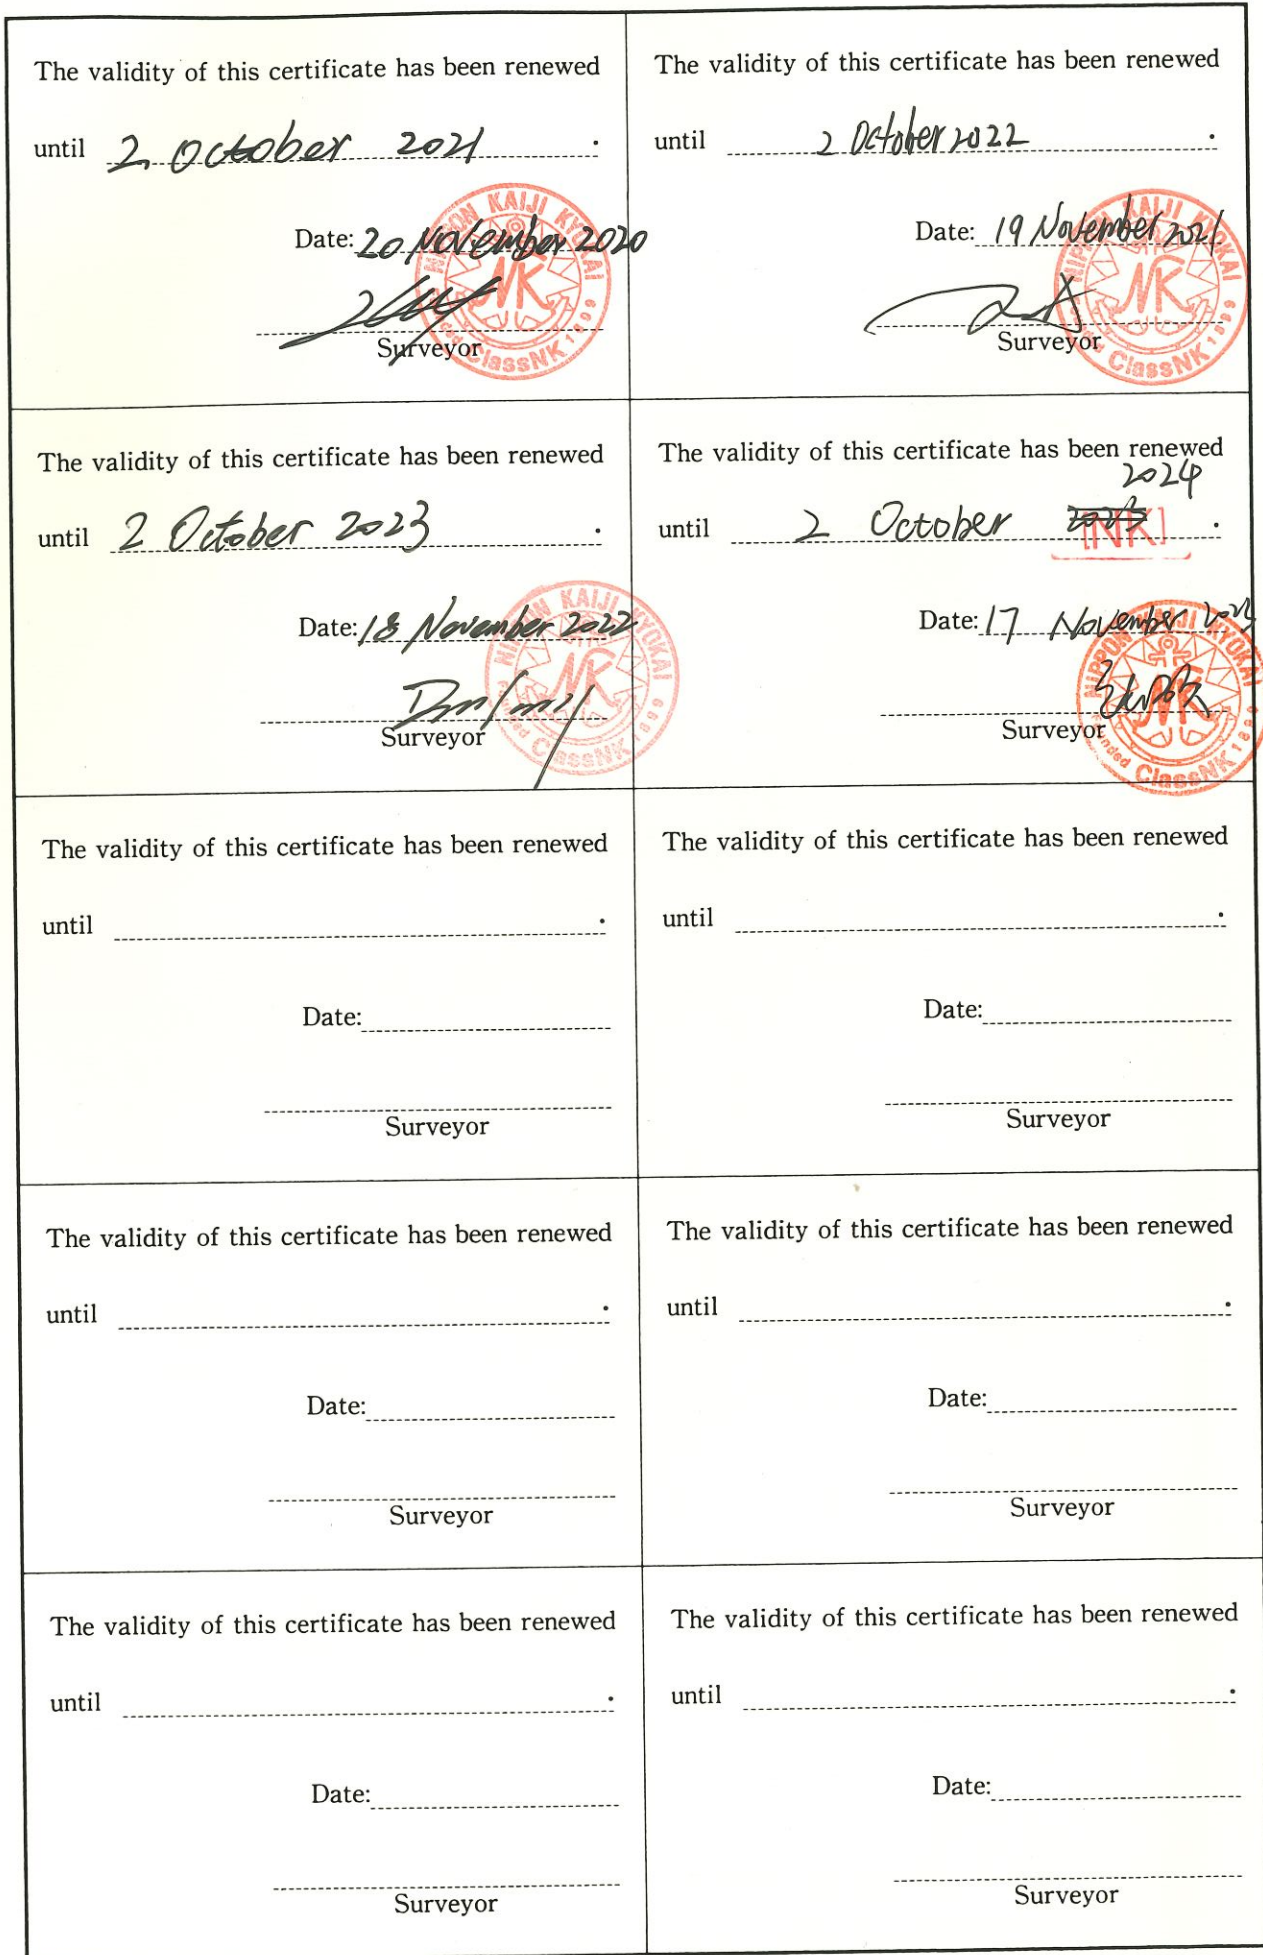 The validity of this certificate has been renewed
until 2 October 2021.
Date: 20 November 2020
NIPPON KAIJI KYOKAI
NK
ClassNK 1899
Surveyor
The validity of this certificate has been renewed
until 2 October 2022.
Date: 19 November 2021
NIPPON KAIJI KYOKAI
NK
ClassNK 1899
Surveyor
The validity of this certificate has been renewed
until 2 October 2023.
Date: 18 November 2022
NIPPON KAIJI KYOKAI
NK
ClassNK 1899
Surveyor
The validity of this certificate has been renewed
2024
until 2 October .
NK
Date: 17 November
NIPPON KAIJI KYOKAI
NK
Founded ClassNK 1899
Surveyor
The validity of this certificate has been renewed
until .
Date:
Surveyor
The validity of this certificate has been renewed
until .
Date:
Surveyor
The validity of this certificate has been renewed
until .
Date:
Surveyor
The validity of this certificate has been renewed
until .
Date:
Surveyor
The validity of this certificate has been renewed
until .
Date:
Surveyor
The validity of this certificate has been renewed
until .
Date:
Surveyor